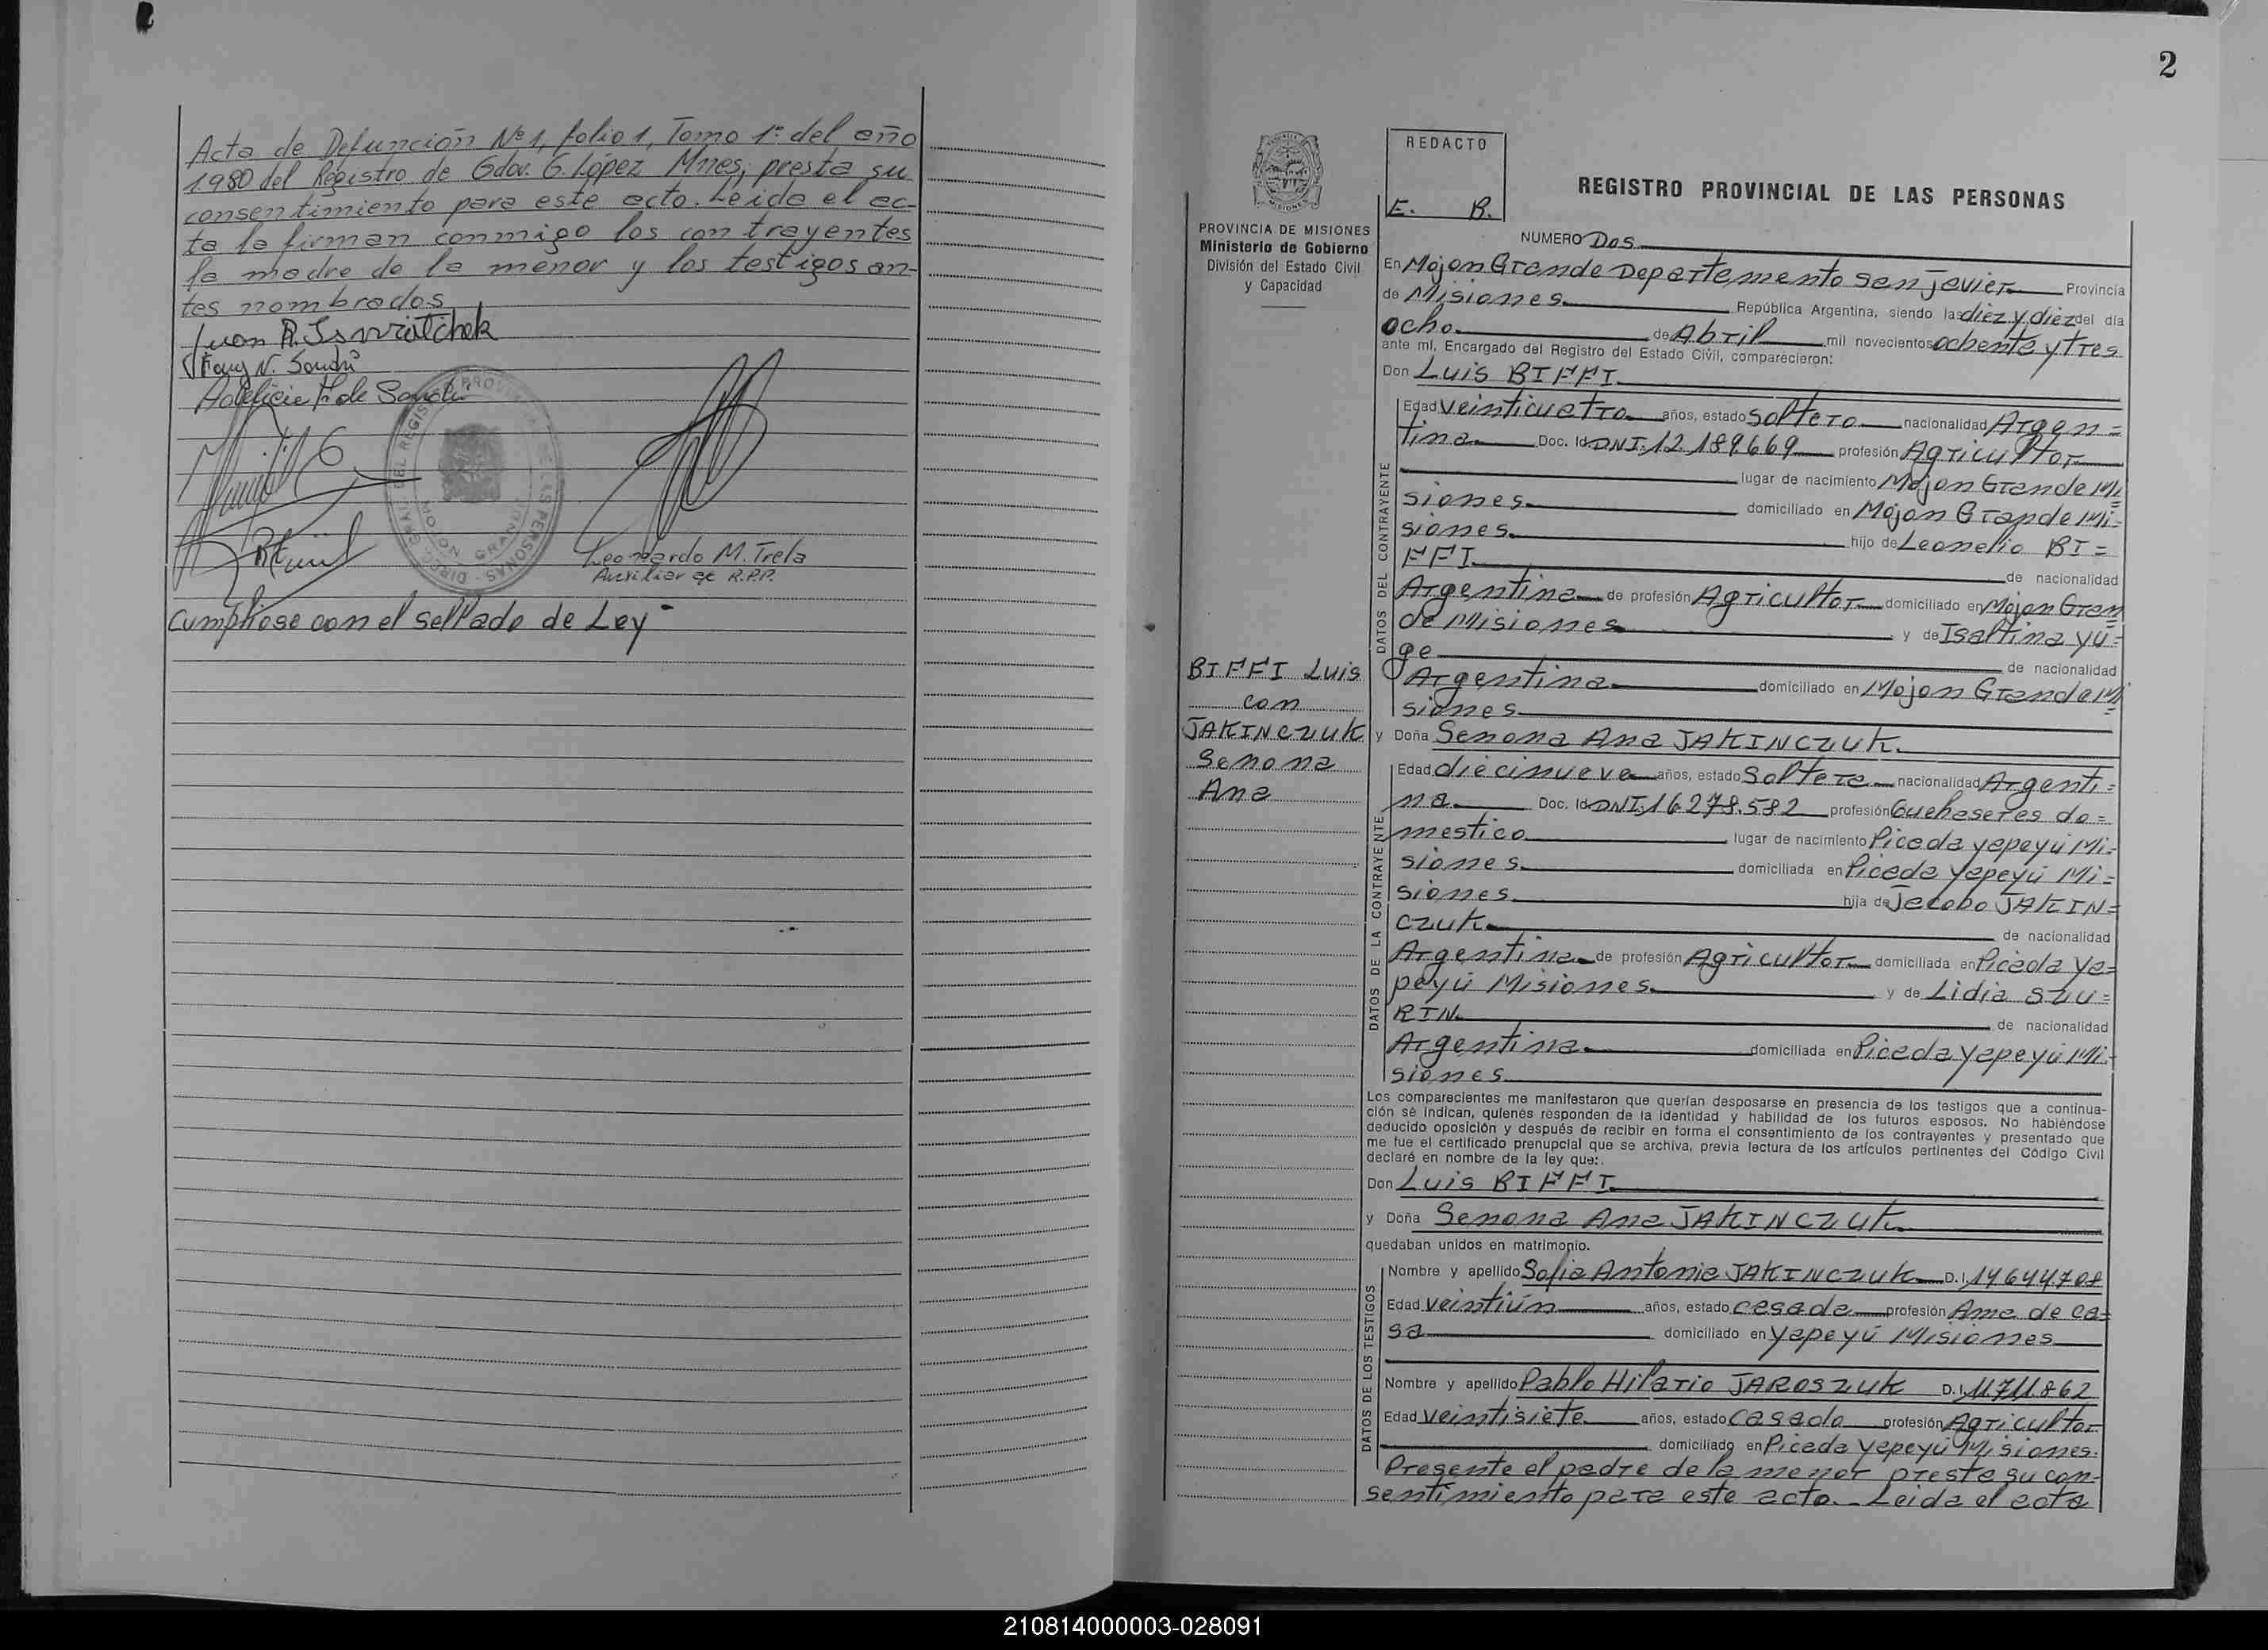 Acta de Defunción Nº 1, folio 1, Tomo 1º del año
1.980 del Registro de Gdor. G. López Mnes, presta su
consentimiento para este acto. Leida el ac-
ta la firman conmigo los contrayentes
la madre de la menor y los testigos an-
tes nombrados
Juan R. Iswratchek
Leonardo M. Trela
Auxiliar R.P.P.
Cumpliose con el sellado de Ley
2
REDACTO
E. B.
REGISTRO PROVINCIAL DE LAS PERSONAS
PROVINCIA DE MISIONES
Ministerio de Gobierno
División del Estado Civil
y Capacidad
NUMERO Dos
En Mojon Grande Departamento San Javier Provincia
de Misiones República Argentina, siendo las diez y diez del día
ocho de Abril mil novecientos ochenta y tres
ante mí, Encargado del Registro del Estado Civil, comparecieron:
Don Luis BIFFI
DATOS DEL CONTRAYENTE
Edad veinticuatro años, estado soltero nacionalidad Argen=
tina Doc. Id. DNI. 12.189.669 profesión Agricultor
lugar de nacimiento Mojon Grande Mi
siones domiciliado en Mojon Grande Mi=
siones hijo de Leonelio BI=
FFI de nacionalidad
Argentina de profesión Agricultor domiciliado en Mojon Gran
de Misiones y de Isaltina Yu=
ge de nacionalidad
Argentina domiciliado en Mojon Grande Mi
siones
BIFFI Luis
con
JAKINCZUK
Senona
Ana
y Doña Senona Ana JAKINCZUK
DATOS DE LA CONTRAYENTE
Edad diecinueve años, estado Soltera nacionalidad Argenti=
na Doc. Id. DNI. 16.278.582 profesión Quehaseres do=
mestico lugar de nacimiento Picada yapeyú Mi=
siones domiciliada en Picada Yapeyú Mi=
siones hija de Jacobo JAKIN=
CZUK de nacionalidad
Argentina de profesión Agricultor domiciliada en Picada Ya=
peyú Misiones y de Lidia SZU=
RIN de nacionalidad
Argentina domiciliada en Picada Yapeyú Mi=
siones
Los comparecientes me manifestaron que querían desposarse en presencia de los testigos que a continua-
ción se indican, quienes responden de la identidad y habilidad de los futuros esposos. No habiéndose
deducido oposición y después de recibir en forma el consentimiento de los contrayentes y presentado que
me fue el certificado prenupcial que se archiva, previa lectura de los artículos pertinentes del Código Civil
declaré en nombre de la ley que:
Don Luis BIFFI
y Doña Senona Ana JAKINCZUK
quedaban unidos en matrimonio.
DATOS DE LOS TESTIGOS
Nombre y apellido Sofia Antonia JAKINCZUK D.I. 14644708
Edad veintiún años, estado casada profesión Ama de ca=
sa domiciliado en Yapeyú Misiones
Nombre y apellido Pablo Hilario JAROSZUK D.I. 11.711.862
Edad veintisiete años, estado casado profesión Agricultor
domiciliado en Picada Yapeyú Misiones.
Presente el padre de la menor presta su con-
sentimiento para este acto.- Leida el acta
210814000003-028091